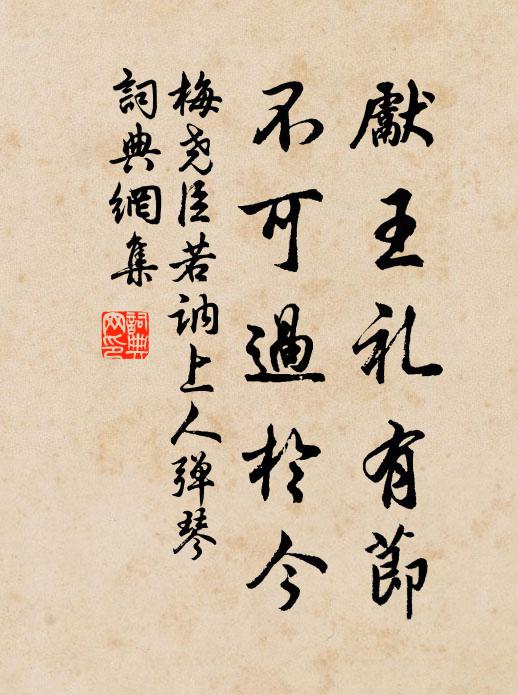 獻王礼有節
不可過於今
梅堯臣若訥上人弹琴
詞典網集
詞典
网印